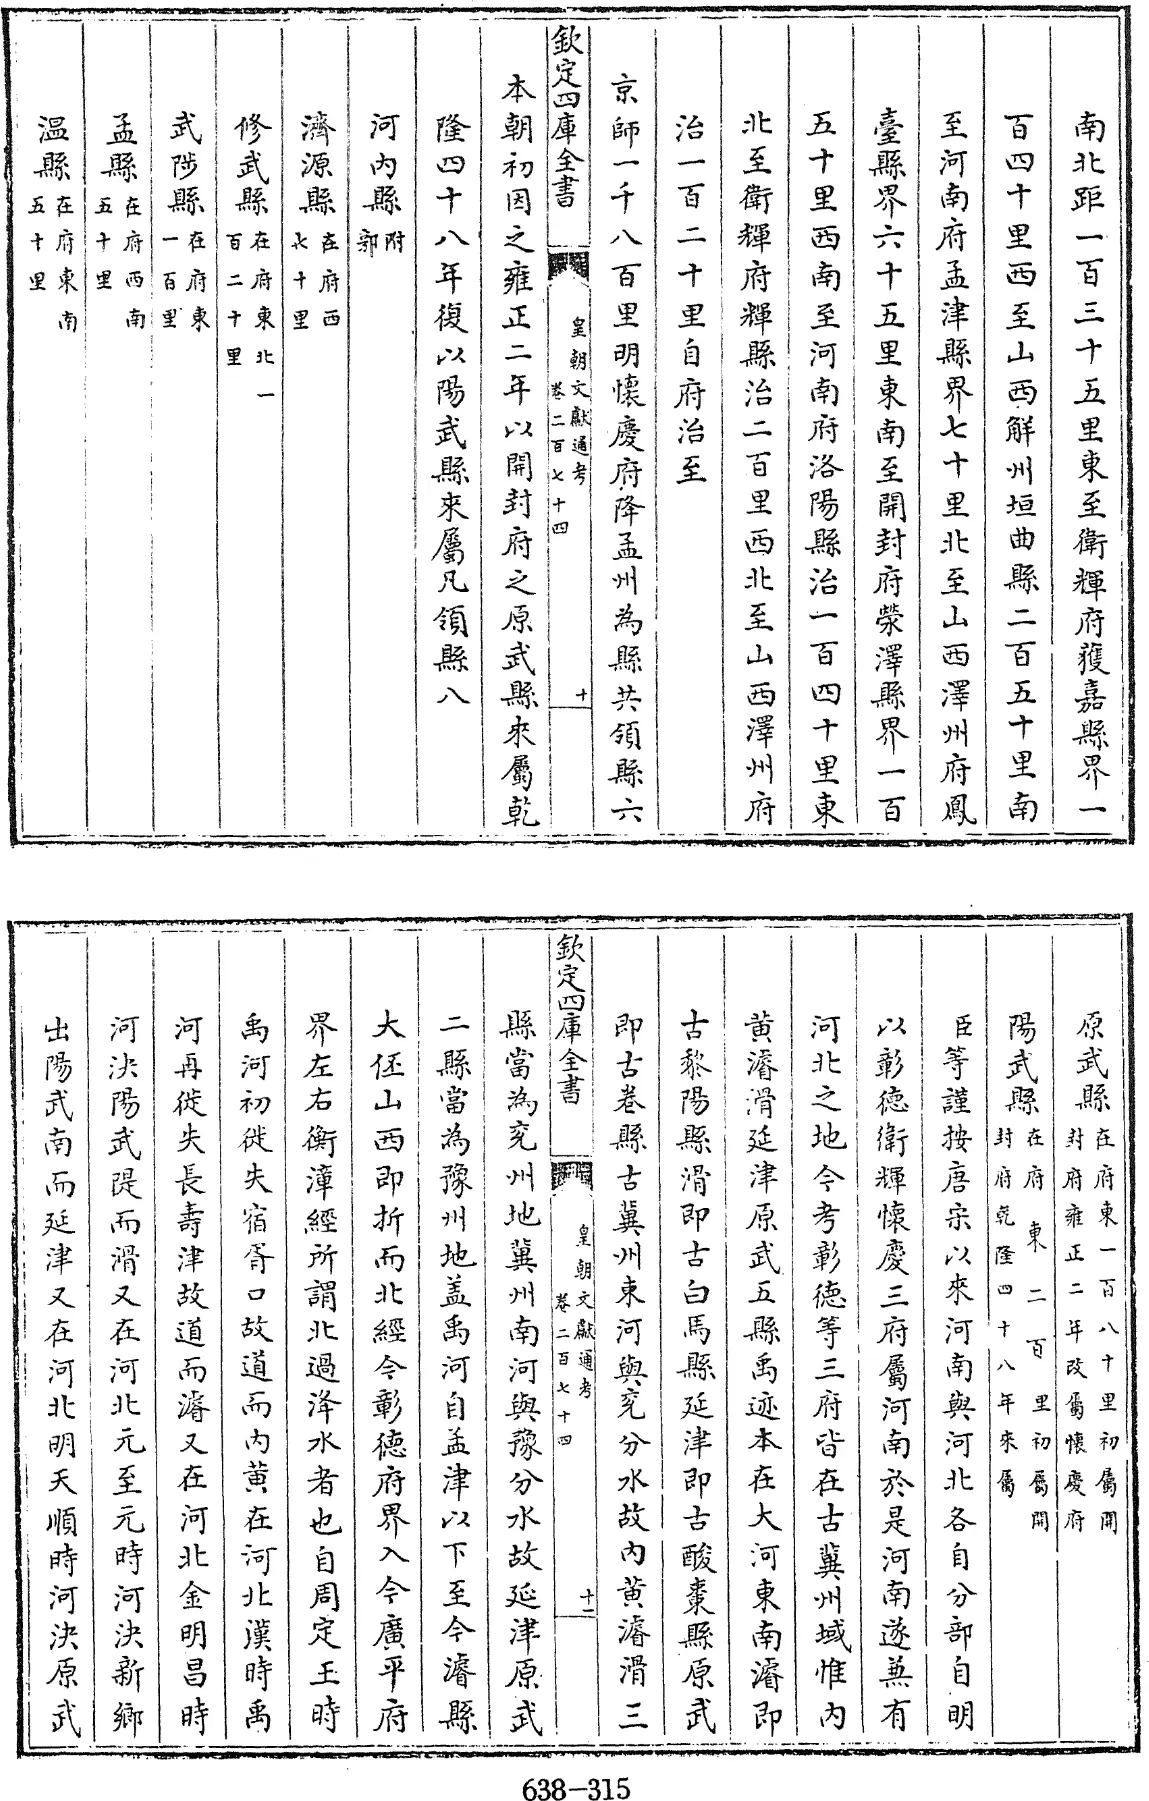 南北距一百三十五里東至衛輝府獲嘉縣界一
百四十里西至山西解州垣曲縣二百五十里南
至河南府孟津縣界七十里北至山西澤州府鳳
臺縣界六十五里東南至開封府滎澤縣界一百
五十里西南至河南府洛陽縣治一百四十里東
北至衛輝府輝縣治二百里西北至山西澤州府
治一百二十里自府治至
京師一千八百里明懷慶府降孟州為縣共領縣六
欽定四庫全書
皇朝文獻通考
卷二百七十四
十
本朝初因之雍正二年以開封府之原武縣來屬乾
隆四十八年復以陽武縣來屬凡領縣八
河内縣附郭
濟源縣在府西七十里
修武縣在府東北一百二十里
武陟縣在府東一百里
孟縣在府西南五十里
温縣在府東南五十里
原武縣在府東一百八十里初屬開封府雍正二年改屬懷慶府
陽武縣在府東二百里初屬開封府乾隆四十八年來屬
臣等謹按唐宗以來河南與河北各自分部自明
以彰德衛輝懷慶三府屬河南於是河南遂兼有
河北之地今考彰德等三府皆在古冀州域惟内
黄濬滑延津原武五縣禹迹本在大河東南濬即
古黎陽縣滑即古白馬縣延津即古酸棗縣原武
即古卷縣古冀州東河與兖分水故内黄濬滑三
欽定四庫全書
皇朝文獻通考
卷二百七十四
十二
縣當為兖州地冀州南河與豫分水故延津原武
二縣當為豫州地盖禹河自孟津以下至今濬縣
大伾山西即折而北經今彰德府界入今廣平府
界左右衡漳經所謂北過洚水者也自周定王時
禹河初徙失宿胥口故道而内黄在河北漢時禹
河再徙失長壽津故道而濬又在河北金明昌時
河決陽武隄而滑又在河北元至元時河決新鄉
出陽武南而延津又在河北明天順時河決原武
638-315